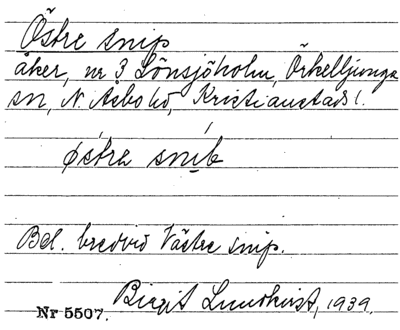 Östre snip
åker, nr 3 Lönsjöholm, Örkelljunga
sn, N. Åsbo hd, Kristianstads l.
östra snib
Bel. bredvid Västre snip.
Birgit Lundkvist, 1939.
Nr 5507.